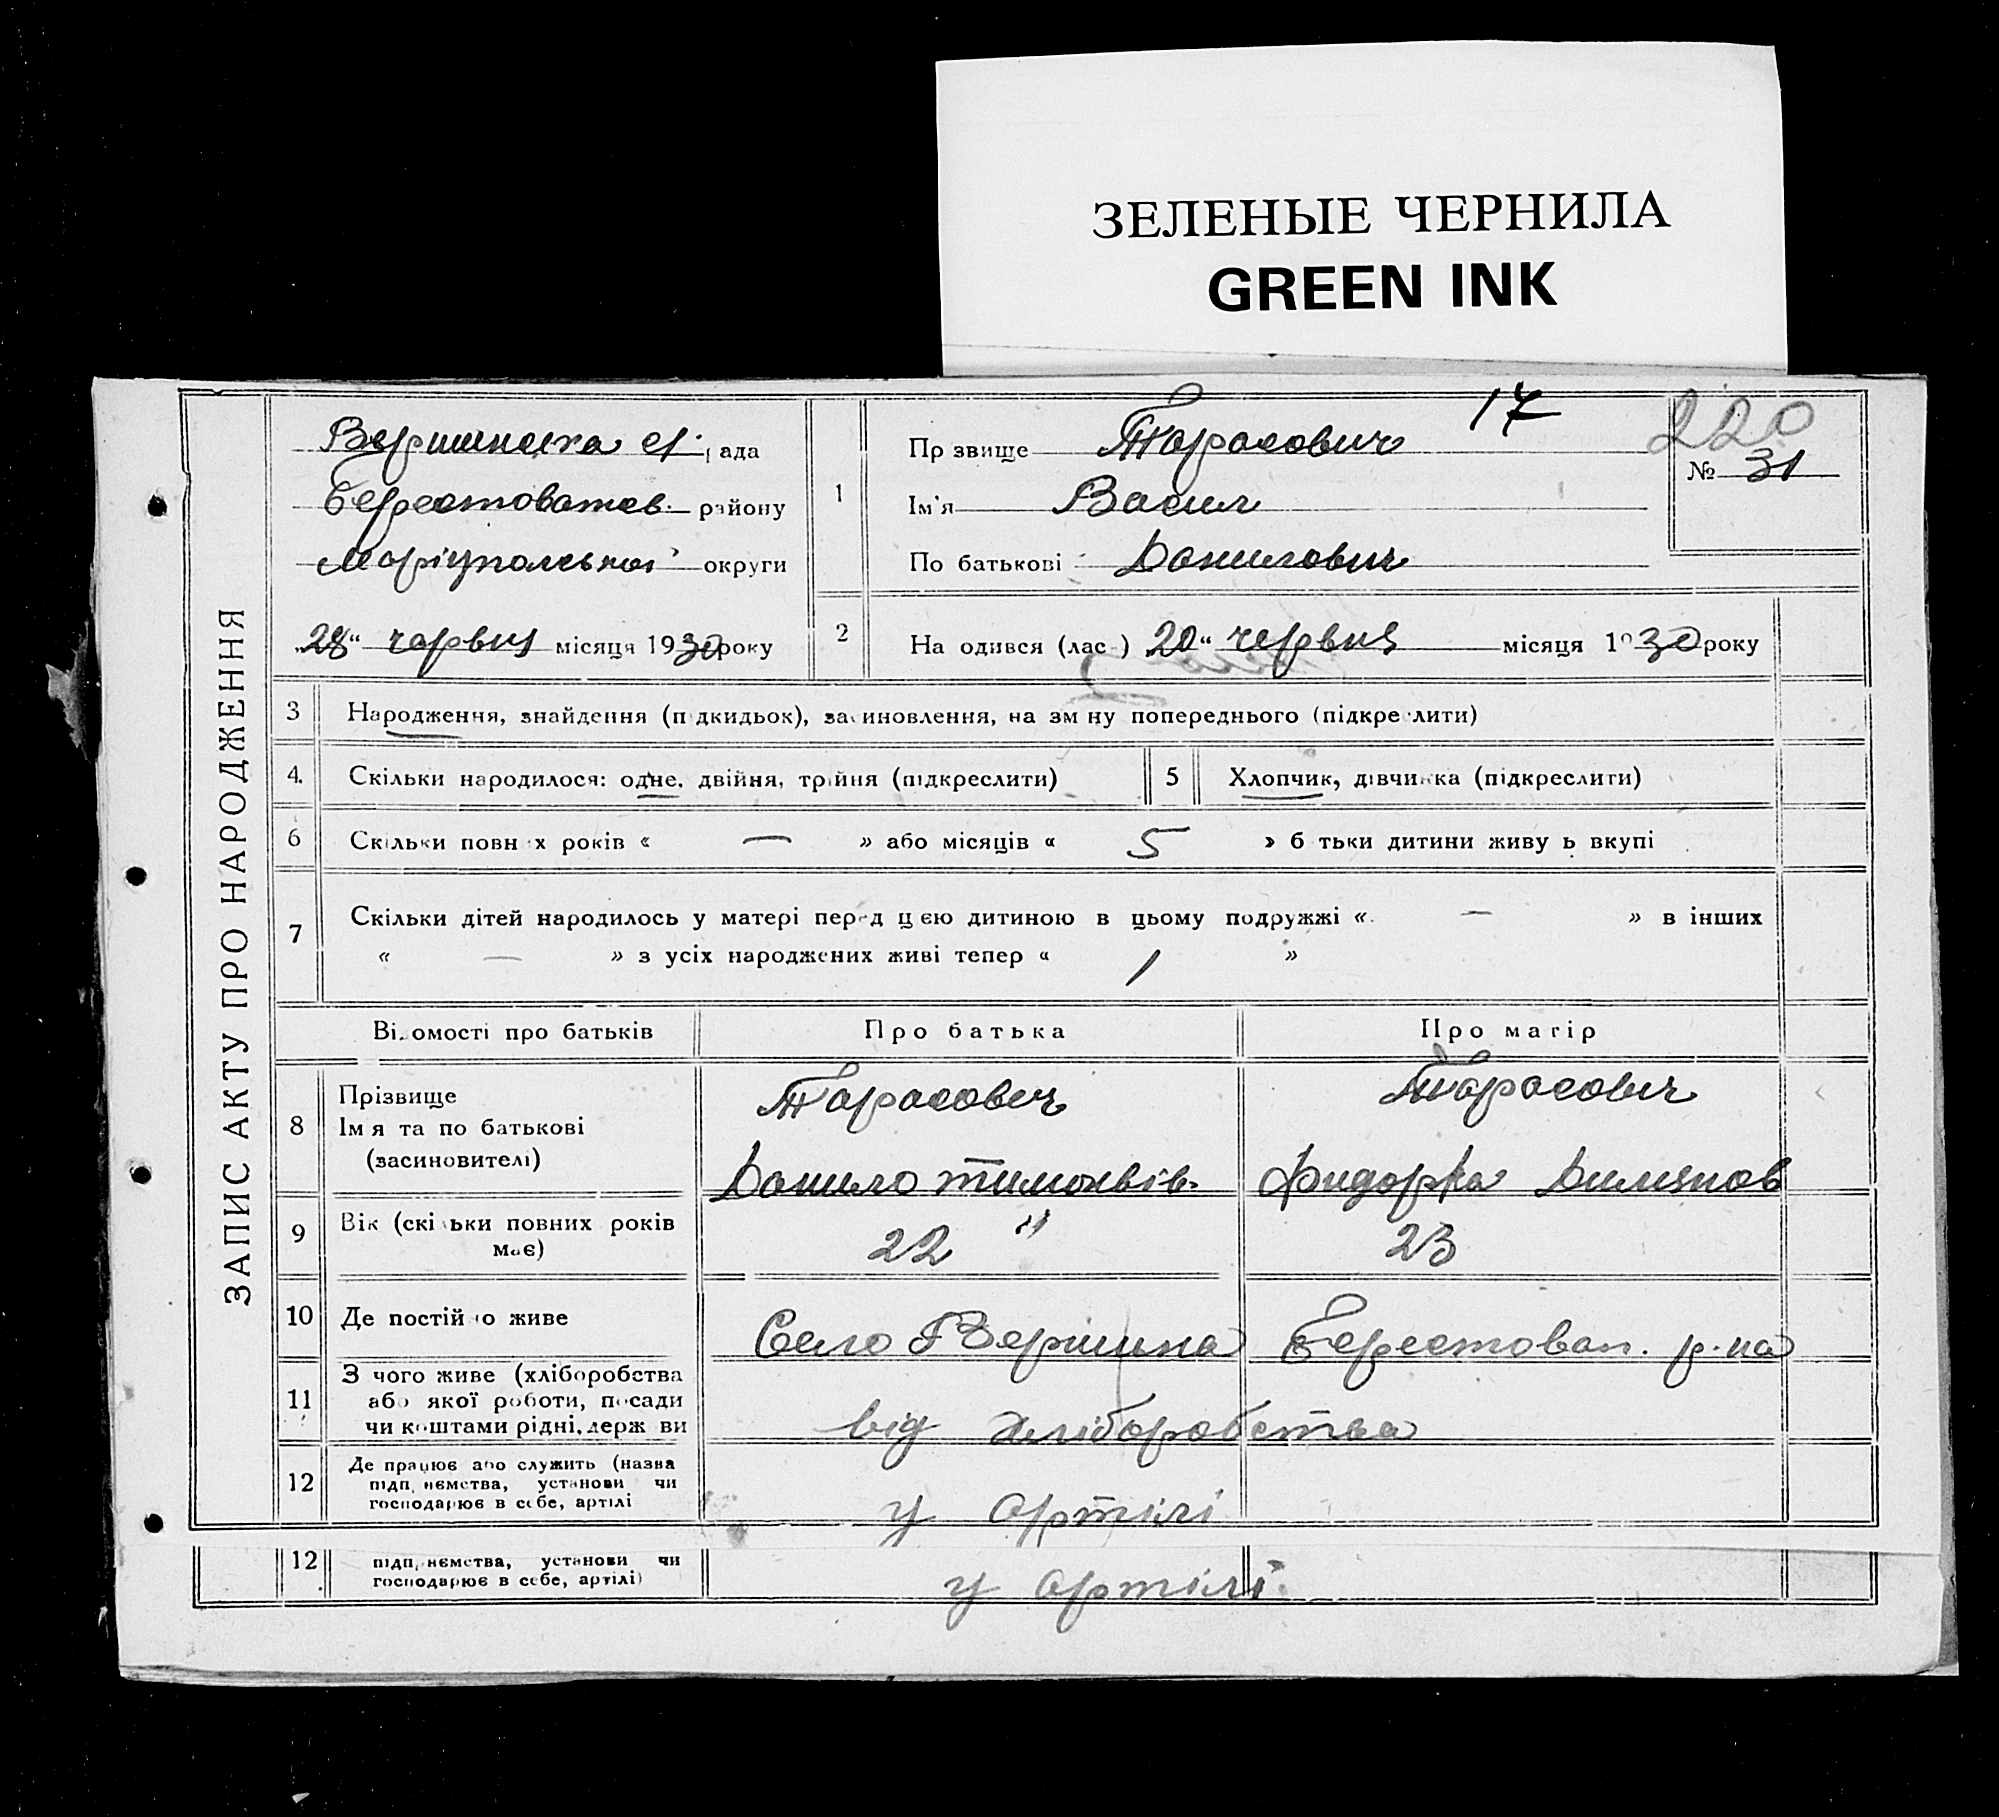 ЗЕЛЕНЫЕ ЧЕРНИЛА
GREEN INK
17
220
№ 31
ЗАПИС АКТУ ПРО НАРОДЖЕННЯ
Вершинська с/ рада
Берестоватсв. району
Маріупольської округи
28" червня місяця 1930 року
1
Пр звище Тарасович
Ім'я Васил
По батькові Данилович
2
На одився (лас ) 20" червня місяця 1930 року
3 Народження, знайдення (п дкидьок), засиновлення, на зм ну попереднього (підкре лити)
4. Скільки народилося: одне, двійня, трійня (підкреслити)
5 Хлопчик, дівчинка (підкреслити)
6 Скільки повн х років « — » або місяців « 5 » б тьки дитини живу ь вкупі
7 Скільки дітей народилось у матері перед цією дитиною в цьому подружжі « — » в інших
« — » з усіх народжених живі тепер « 1 »
Ві омості про батьків
Про батька
Про матір
8 Прізвище
Ім я та по батькові
(засиновителі)
Тарасович
Данило
Тарасович
Фидорка
9 Вік (скі ьки повних років
має)
22
23
10 Де постій о живе
Село Вершина Берестоват. р-на
11 З чого живе (хліборобства
або якої роботи, посади
чи коштами рідні, держ ви
від хліборобства
12 Де працює або служить (назва
підп иємства, установи чи
господарює в себе, артілі
у артілі
12 підп иємства, установи чи
господарює в себе, артілі)
у артілі